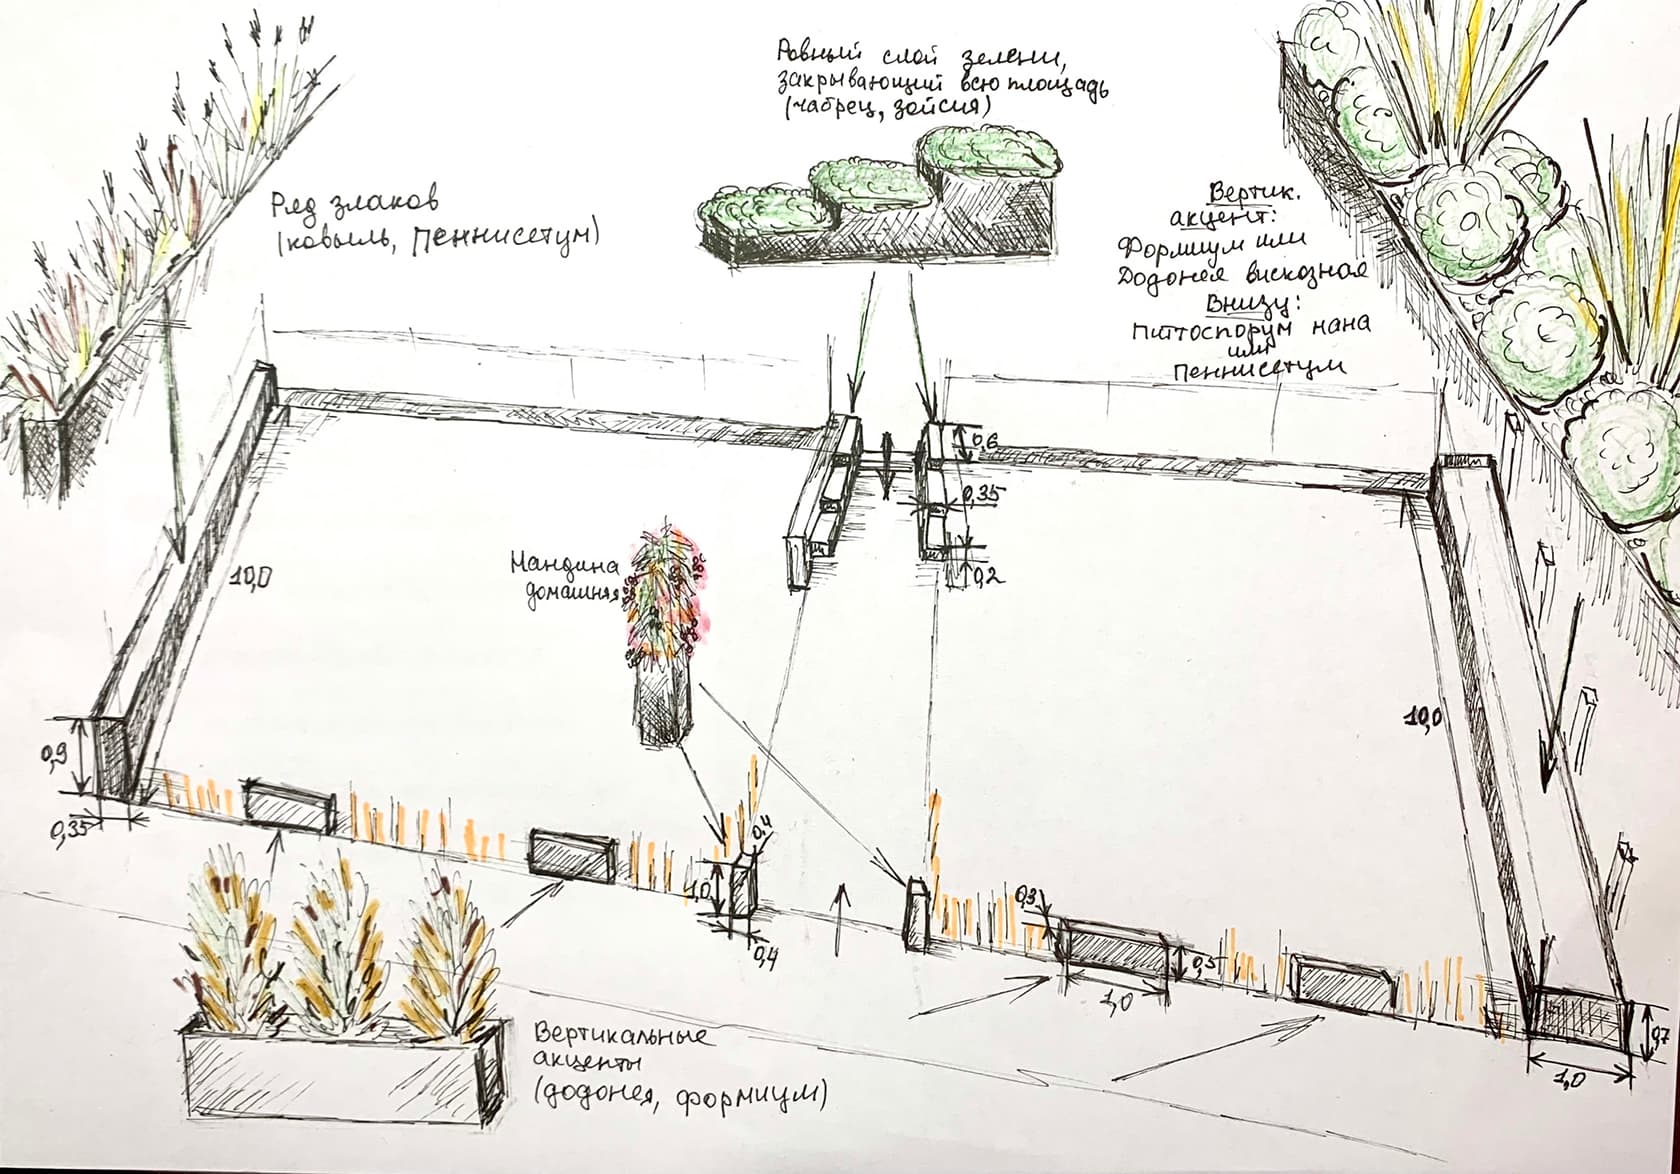 Ровный слой зелени,
закрывающий всю площадь
(чабрец, зойсия)
Ряд злаков
(ковыль, пеннисетум)
Вертик.
акцент:
Формиум или
Додонея вискозная
Внизу:
Питтоспорум нана
или
Пеннисетум
0,6
0,35
0,2
Нандина
домашняя
10,0
10,0
0,9
0,35
0,4
1,0
0,4
0,3
0,5
1,0
0,7
1,0
Вертикальные
акценты
(додонея, формиум)